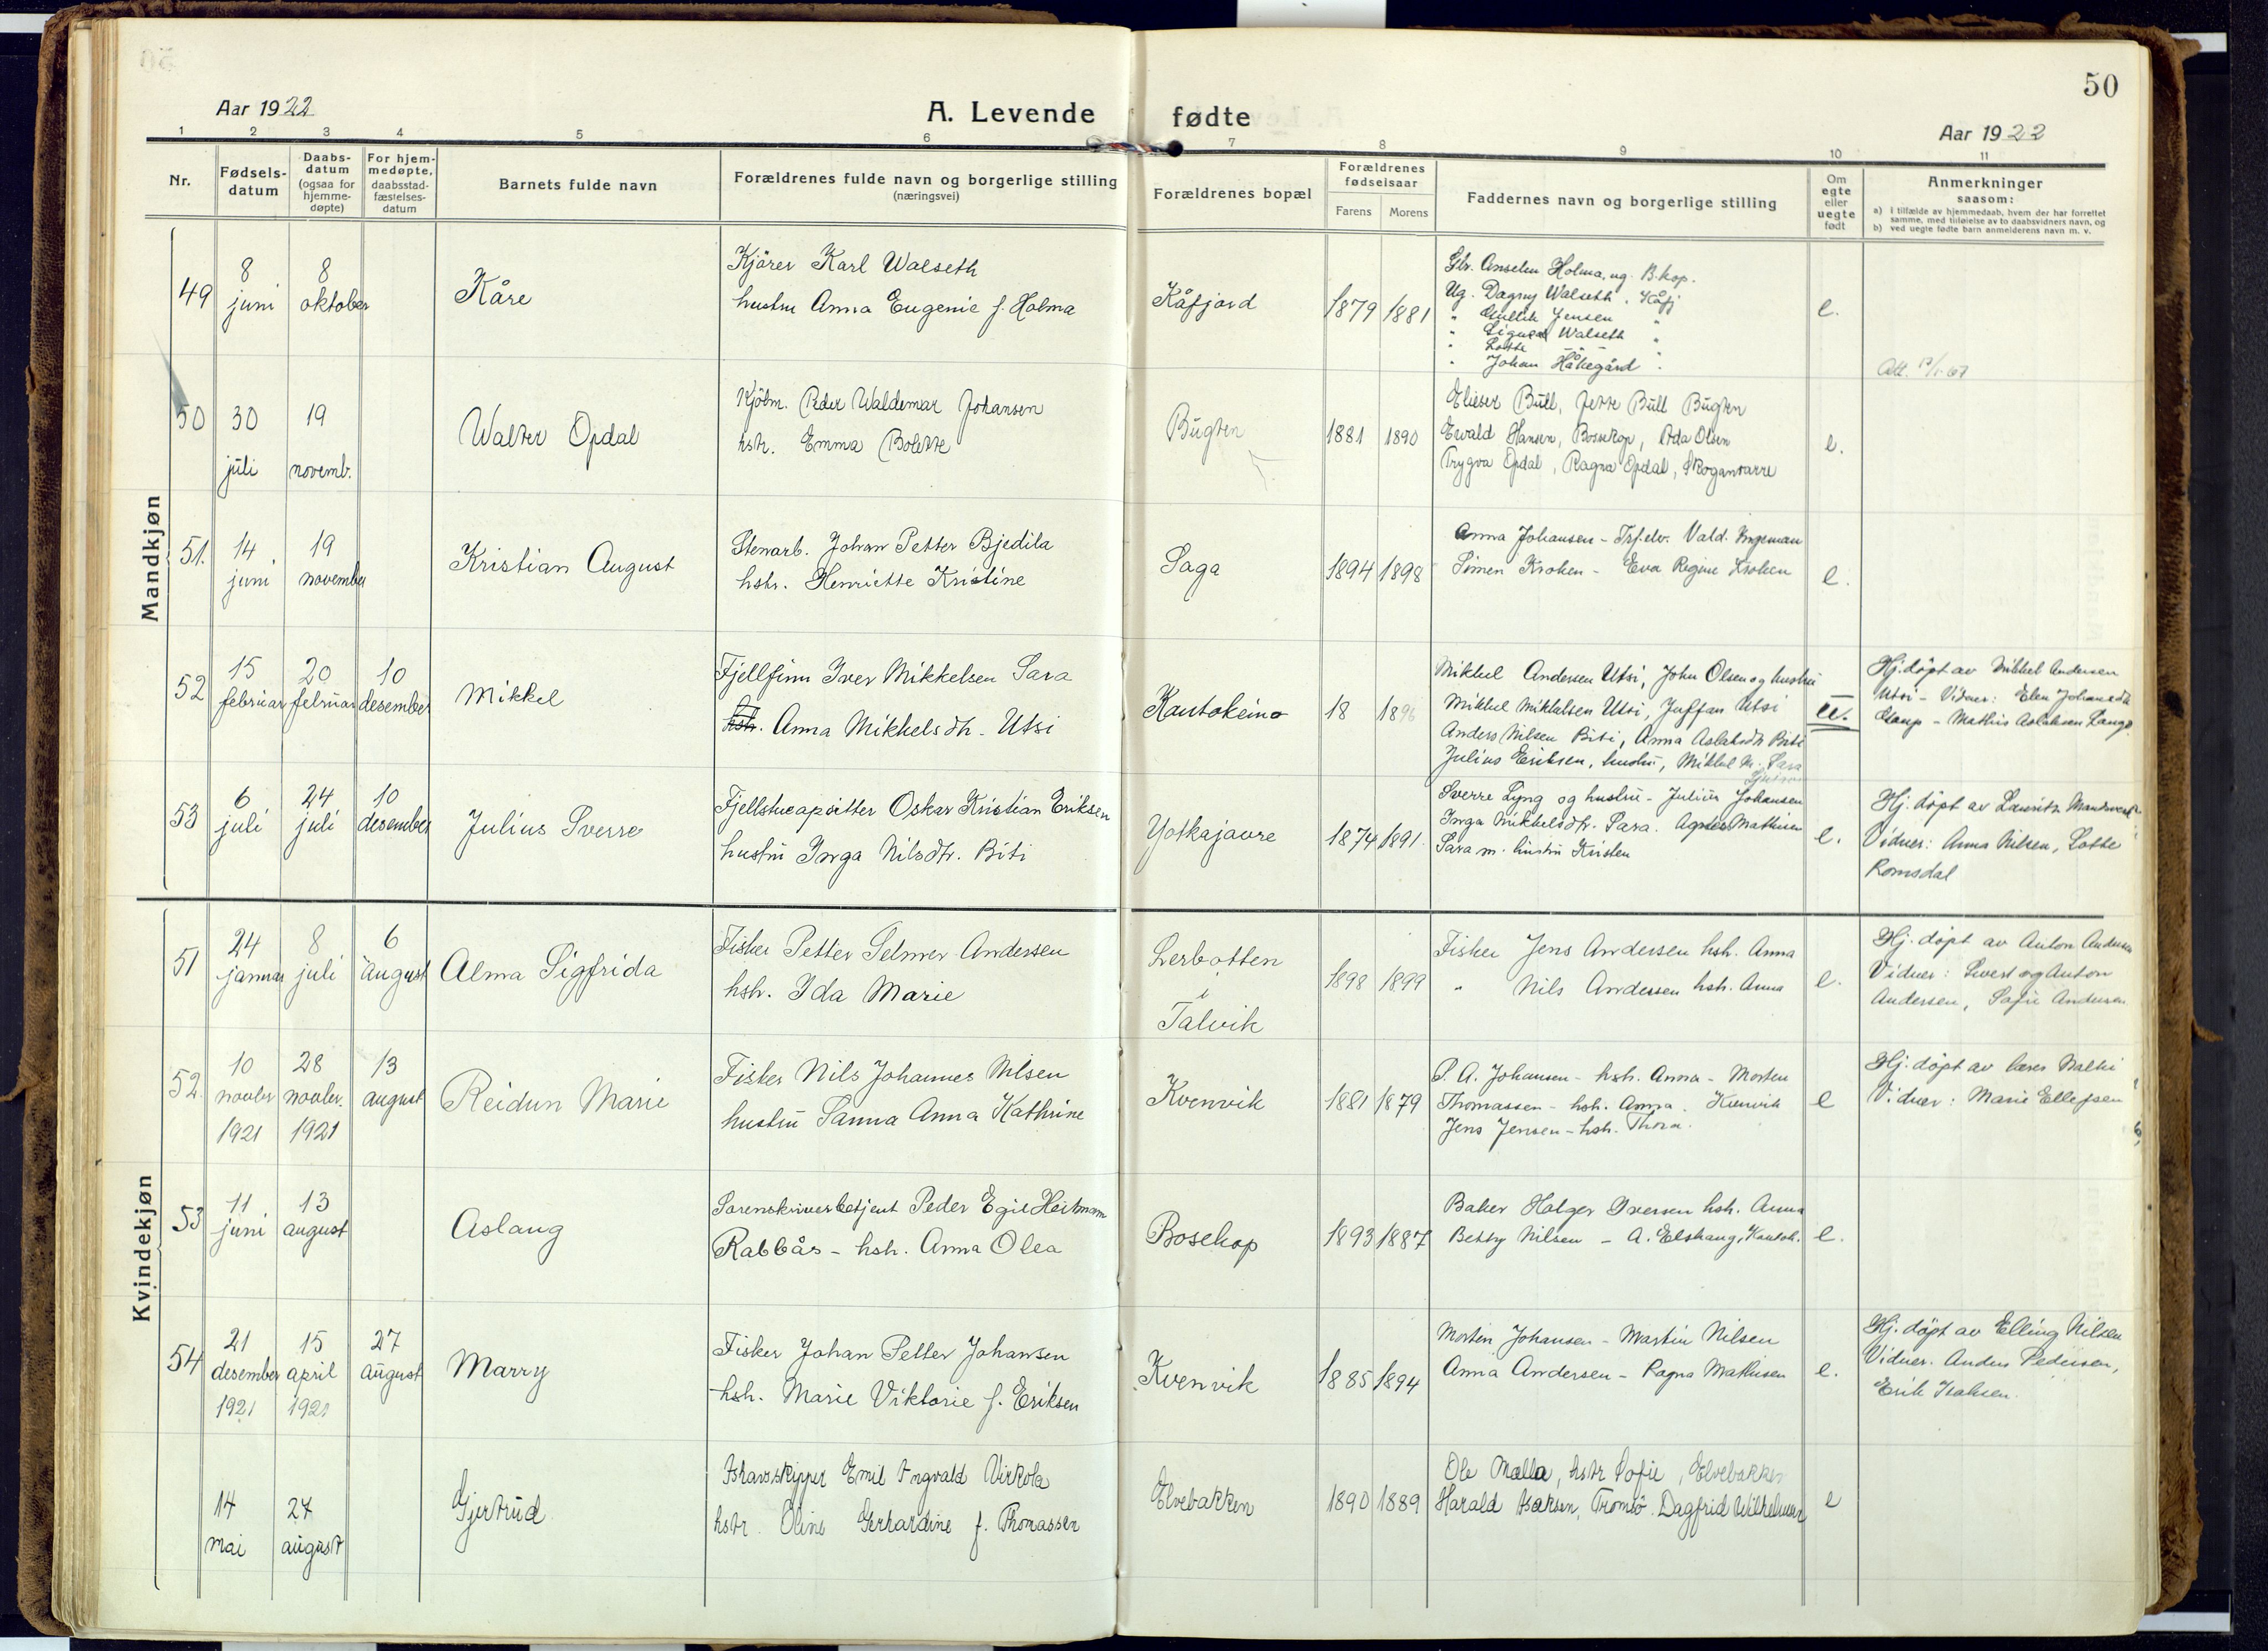 50
Aar 1922
A. Levende fødte
Aar 1922
1 2 3 4 5 6 7 8 9 10 11
Nr.
Fødsels-
datum
Daabs-
datum
(ogsaa for
hjemme-
døpte)
For hjem-
medøpte,
daabsstad-
fæstelses-
datum
Barnets fulde navn
Forældrenes fulde navn og borgerlige stilling
(næringsvei)
Forældrenes bopæl
Forældrenes
fødselsaar
Farens Morens
Faddernes navn og borgerlige stilling
Om
egte
eller
uegte
født
Anmerkninger
saasom:
a) i tilfælde av hjemmedaab, hvem der har forrettet
samme, med tilføielse av to daabsvidners navn, og
b) ved uegte fødte barn anmelderens navn m. v.
Mandkjøn
49
8
juni
8
oktober
Kåre
Kjører Karl Walseth
hustru Anna Eugenie f. Holma
Kåfjord
1879 1881
Anselm Holma, ug. B.kop.
Ug. Dagny Walseth, Kåfj
" Jensen "
" Signe Walseth "
" Lotte
" Johan Håkegård "
e.
50
30
juli
19
novemb.
Walter Opdal
Kjøbm. Peder Waldemar Johansen
hstr. Emma Bolette
Bugten
1881 1890
Elieser Bull, Jette Bull Bugten
Ewald Hansen, Bossekop, Ada Olsen
Trygva Opdal, Ragna Opdal, Skoganvarre
e.
51.
14
juni
19
november
Kristian August
Stenarb. Johan Petter Bjedila
hstr. Henriette Kristine
Saga
1894 1898
Anna Johansen - Vald. Ingeman
Simen Kroken - Eva Regine Kroken
e.
52
15
februar
20
februar
10
desember
Mikkel
Fjellfinn Iver Mikkelsen Sara
hstr. Anna Mikkelsdtr. Utsi
Kautokeino
18 1896
Mikkel Andersen Utsi, John Olsen og hustru
Mikkel Mikkelsen Utsi, Utsi
Anders Nilsen Biti, Anna Aslaksdtr Biti
Julius Eriksen, hustru, Mikkel M. Sara
u.
Hj.døpt av Mikkel Andersen
Utsi - Vidner: Elen Johansdtr
- Mathis Aslaksen
53
6
juli
24
juli
10
desember
Julius Sverre
Fjellstueopsitter Oskar Kristian Eriksen
hustru Inga Nilsdtr. Biti
Jotkajavre
1874 1891
Sverre Lyng og hustru - Julius Johansen
Inga Mikkelsdtr. Sara. Agnes Mathisen
Sara m. hustru Kristen
e.
Hj. døpt av Lauritz
Vidner: Anna Nilsen, Lotte
Romsdal
Kvindekjøn
51
24
januar
8
juli
6
august
Alma Sigfrida
Fisker Petter Selmer Andersen
hstr. Ida Marie
Lerbotten
i
Talvik
1898 1899
Fisker Jens Andersen hstr. Anna
" Nils Andersen hstr. Anna
e.
Hj. døpt av Anton Andersen
Vidner: Sivert og Anton
Andersen, Sofie Andersen
52.
10
novbr
1921
28
novbr.
1921
13
august
Reidun Marie
Fisker Nils Johannes Nilsen
hustru Sanna Anna Kathrine
Kvenvik
1881 1879
P. A. Johansen - hstr. Anna - Morten
Thomassen - hstr. Anna. Kvenvik
Jens Jensen - hstr. Thora.
e
Hj. døpt av lærer
Vidner: Marie Ellefsen
53
11
juni
13
august
Aslaug
Sorenskriverbetjent Peder Egil Heitmann
Rabbås - hstr. Anna Olea
Bosekop
1893 1887
Baker Holger Iversen hstr. Anna
Betsy Nilsen - A. Elshaug, Kautok.
e.
54
21
desember
1921
15
april
1921
27
august
Marry
Fisker Johan Petter Johansen
hstr. Marie Viktorie f. Eriksen
Kvenvik
1885 1894
Morten Johansen - Martin Nilsen
Anna Andersen - Ragna Mathisen
e.
Hj. døpt av Elling Nilsen
Vidner. Anders Pedersen,
Erik Isaksen.
14
mai
27
august
Gjertrud
Ishavsskipper Emil Ingvald Virkola
hstr. Oline Gerhardine f. Thomassen
Elvebakken
1890 1889
Ole Mælla, hstr Sofie, Elvebakken
Harald Isaksen, Tromsø. Dagfrid Wilhelmsen
e